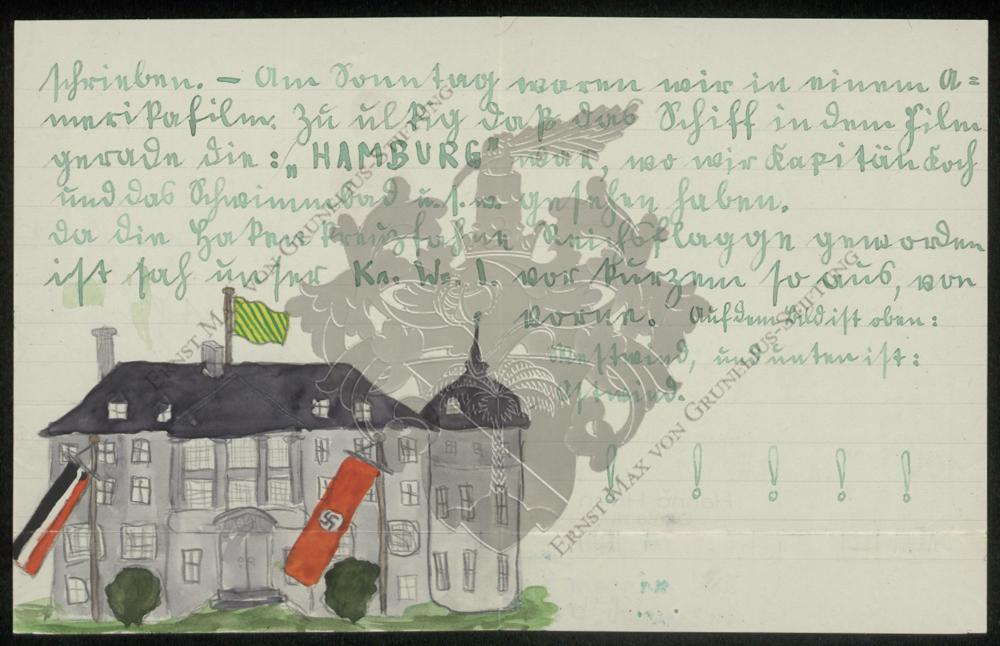 schrieben. – Am Sonntag waren wir in einem A=
merikafilm. Zu ulkig daß das Schiff in dem Film
gerade die: „HAMBURG" war, wo wir Kapitän Koch
und das Schwimmbad u. s. w. gesehen haben.
Da die Hakenkreuzfahne Reichsflagge geworden
ist sah unser Kr. W. I. vor kurzem so aus, von
vorne. Auf dem Bild ist oben:
Westwind, und unten ist:
Ostwind.
! ! ! ! !
ERNST MAX VON GRUNELIUS-STIFTUNG
ERNST MAX VON GRUNELIUS-STIFTUNG